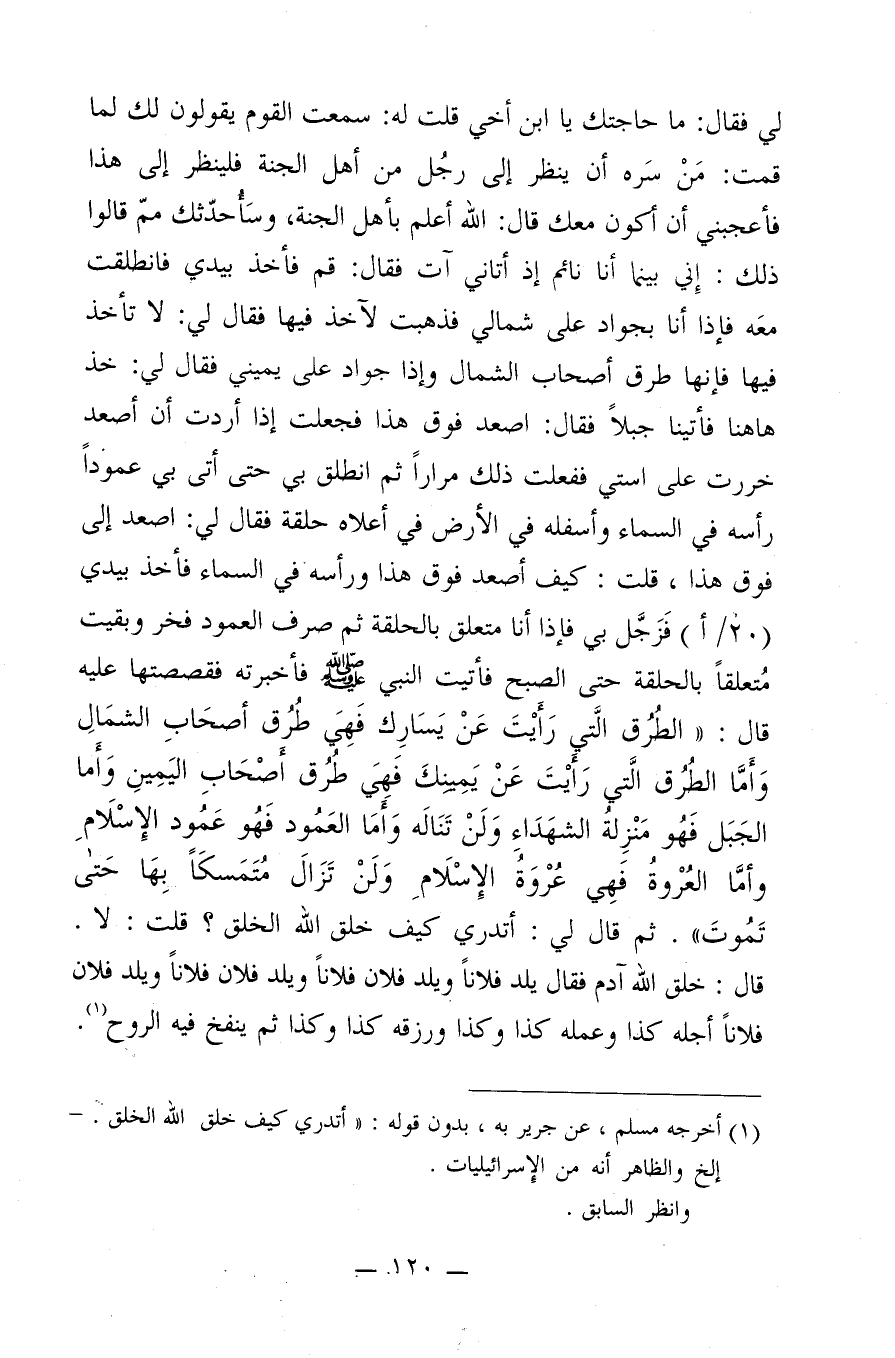 لي فقال: ما حاجتك يا ابن أخي قلت له: سمعت القوم يقولون لك لما
قمت: مَنْ سَره أن ينظر إلى رجُل من أهل الجنة فلينظر إلى هذا
فأعجبني أن أكون معك قال: الله أعلم بأهل الجنة، وسَأُحدّثك ممّ قالوا
ذلك : إِني بينما أنا نائم إذ أتاني آت فقال: قم فأخذ بيدي فانطلقت
معَه فإذا أنا بجواد على شمالي فذهبت لآخذ فيها فقال لي: لا تأخذ
فيها فإنها طرق أصحاب الشمال وإذا جواد على يميني فقال لي: خذ
هاهنا فأتينا جبلاً فقال: اصعد فوق هذا فجعلت إذا أردت أن أصعد
خررت على استي ففعلت ذلك مراراً ثم انطلق بي حتى أتى بي عموداً
رأسه في السماء وأسفله في الأرض في أعلاه حلقة فقال لي: اصعد إلى
فوق هذا ، قلت : كيف أصعد فوق هذا ورأسه في السماء فأخذ بيدي
(٢٠/ أ ) فَزَجَّل بي فإذا أنا متعلق بالحلقة ثم صرف العمود فخر وبقيت
مُتعلقاً بالحلقة حتى الصبح فأتيت النبي ﷺ فأخبرته فقصصتها عليه
قال : « الطُرُق الَّتي رَأَيْتَ عَنْ يَسَارِك فَهِيَ طُرُق أصحَابِ الشمَالِ
وَأَمَّا الطُرُق الَّتي رَأَيْتَ عَنْ يَمِينِكَ فَهِيَ طُرُق أَصْحَابِ اليَمِينِ وَأَما
الجَبَل فَهُو مَنْزِلةُ الشهَدَاءِ وَلَنْ تَنَالَه وَأَمَا العَمُود فَهُو عَمُود الإِسْلَامِ
وأمَّا العُرْوةُ فَهِي عُرْوَةُ الإِسْلَامِ وَلَنْ تَزَالَ مُتَمَسكَاً بِهَا حَتىٰ
تَمُوتَ» . ثم قال لي : أتدري كيف خلق الله الخلق ؟ قلت : لا .
قال : خلق الله آدم فقال يلد فلاناً ويلد فلان فلاناً ويلد فلان فلاناً ويلد فلان
فلاناً أجله كذا وعمله كذا وكذا ورزقه كذا وكذا ثم ينفخ فيه الروح(١).
(١) أخرجه مسلم ، عن جرير به ، بدون قوله : « أتدري كيف خلق الله الخلق . –
إلخ والظاهر أنه من الإسرائيليات .
وانظر السابق .
— ١٢٠ —